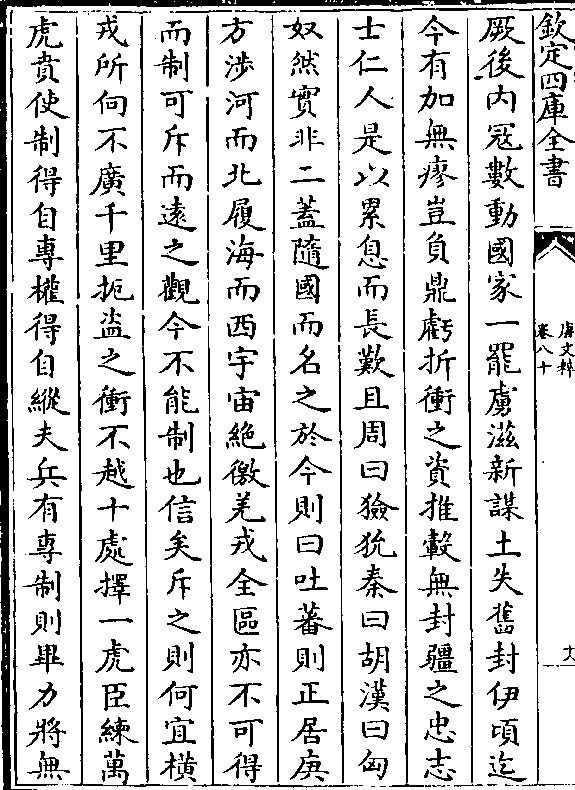 欽定四庫全書
唐文粹
卷八十
十八
厥後内冦數動國家一罷虜滋新謀土失舊封伊頃迄
今有加無瘳豈負鼎虧折衝之資推轂無封疆之忠志
士仁人是以累息而長歎且周曰獫狁秦曰胡漢曰匈
奴然實非二蓋隨國而名之於今則曰吐蕃則正居庚
方渉河而北履海而西宇宙絶徼羌戎全區亦不可得
而制可斥而遠之觀今不能制也信矣斥之則何宜横
戎所向不廣千里扼盗之衝不越十處擇一虎臣練萬
虎賁使制得自專權得自縱夫兵有専制則畢力將無